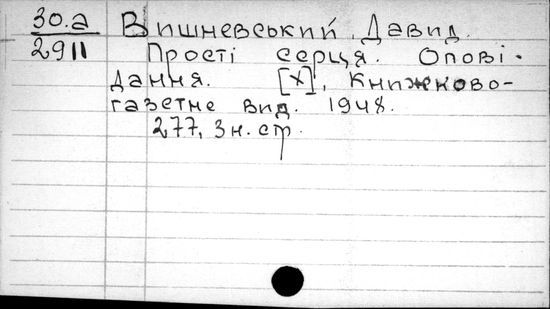 30.а Вишневський, Давид.
2911 Прості серця. Опові-
дання. [Х], Книжково-
газетне вид. 1948.
277, 3 н. стр.